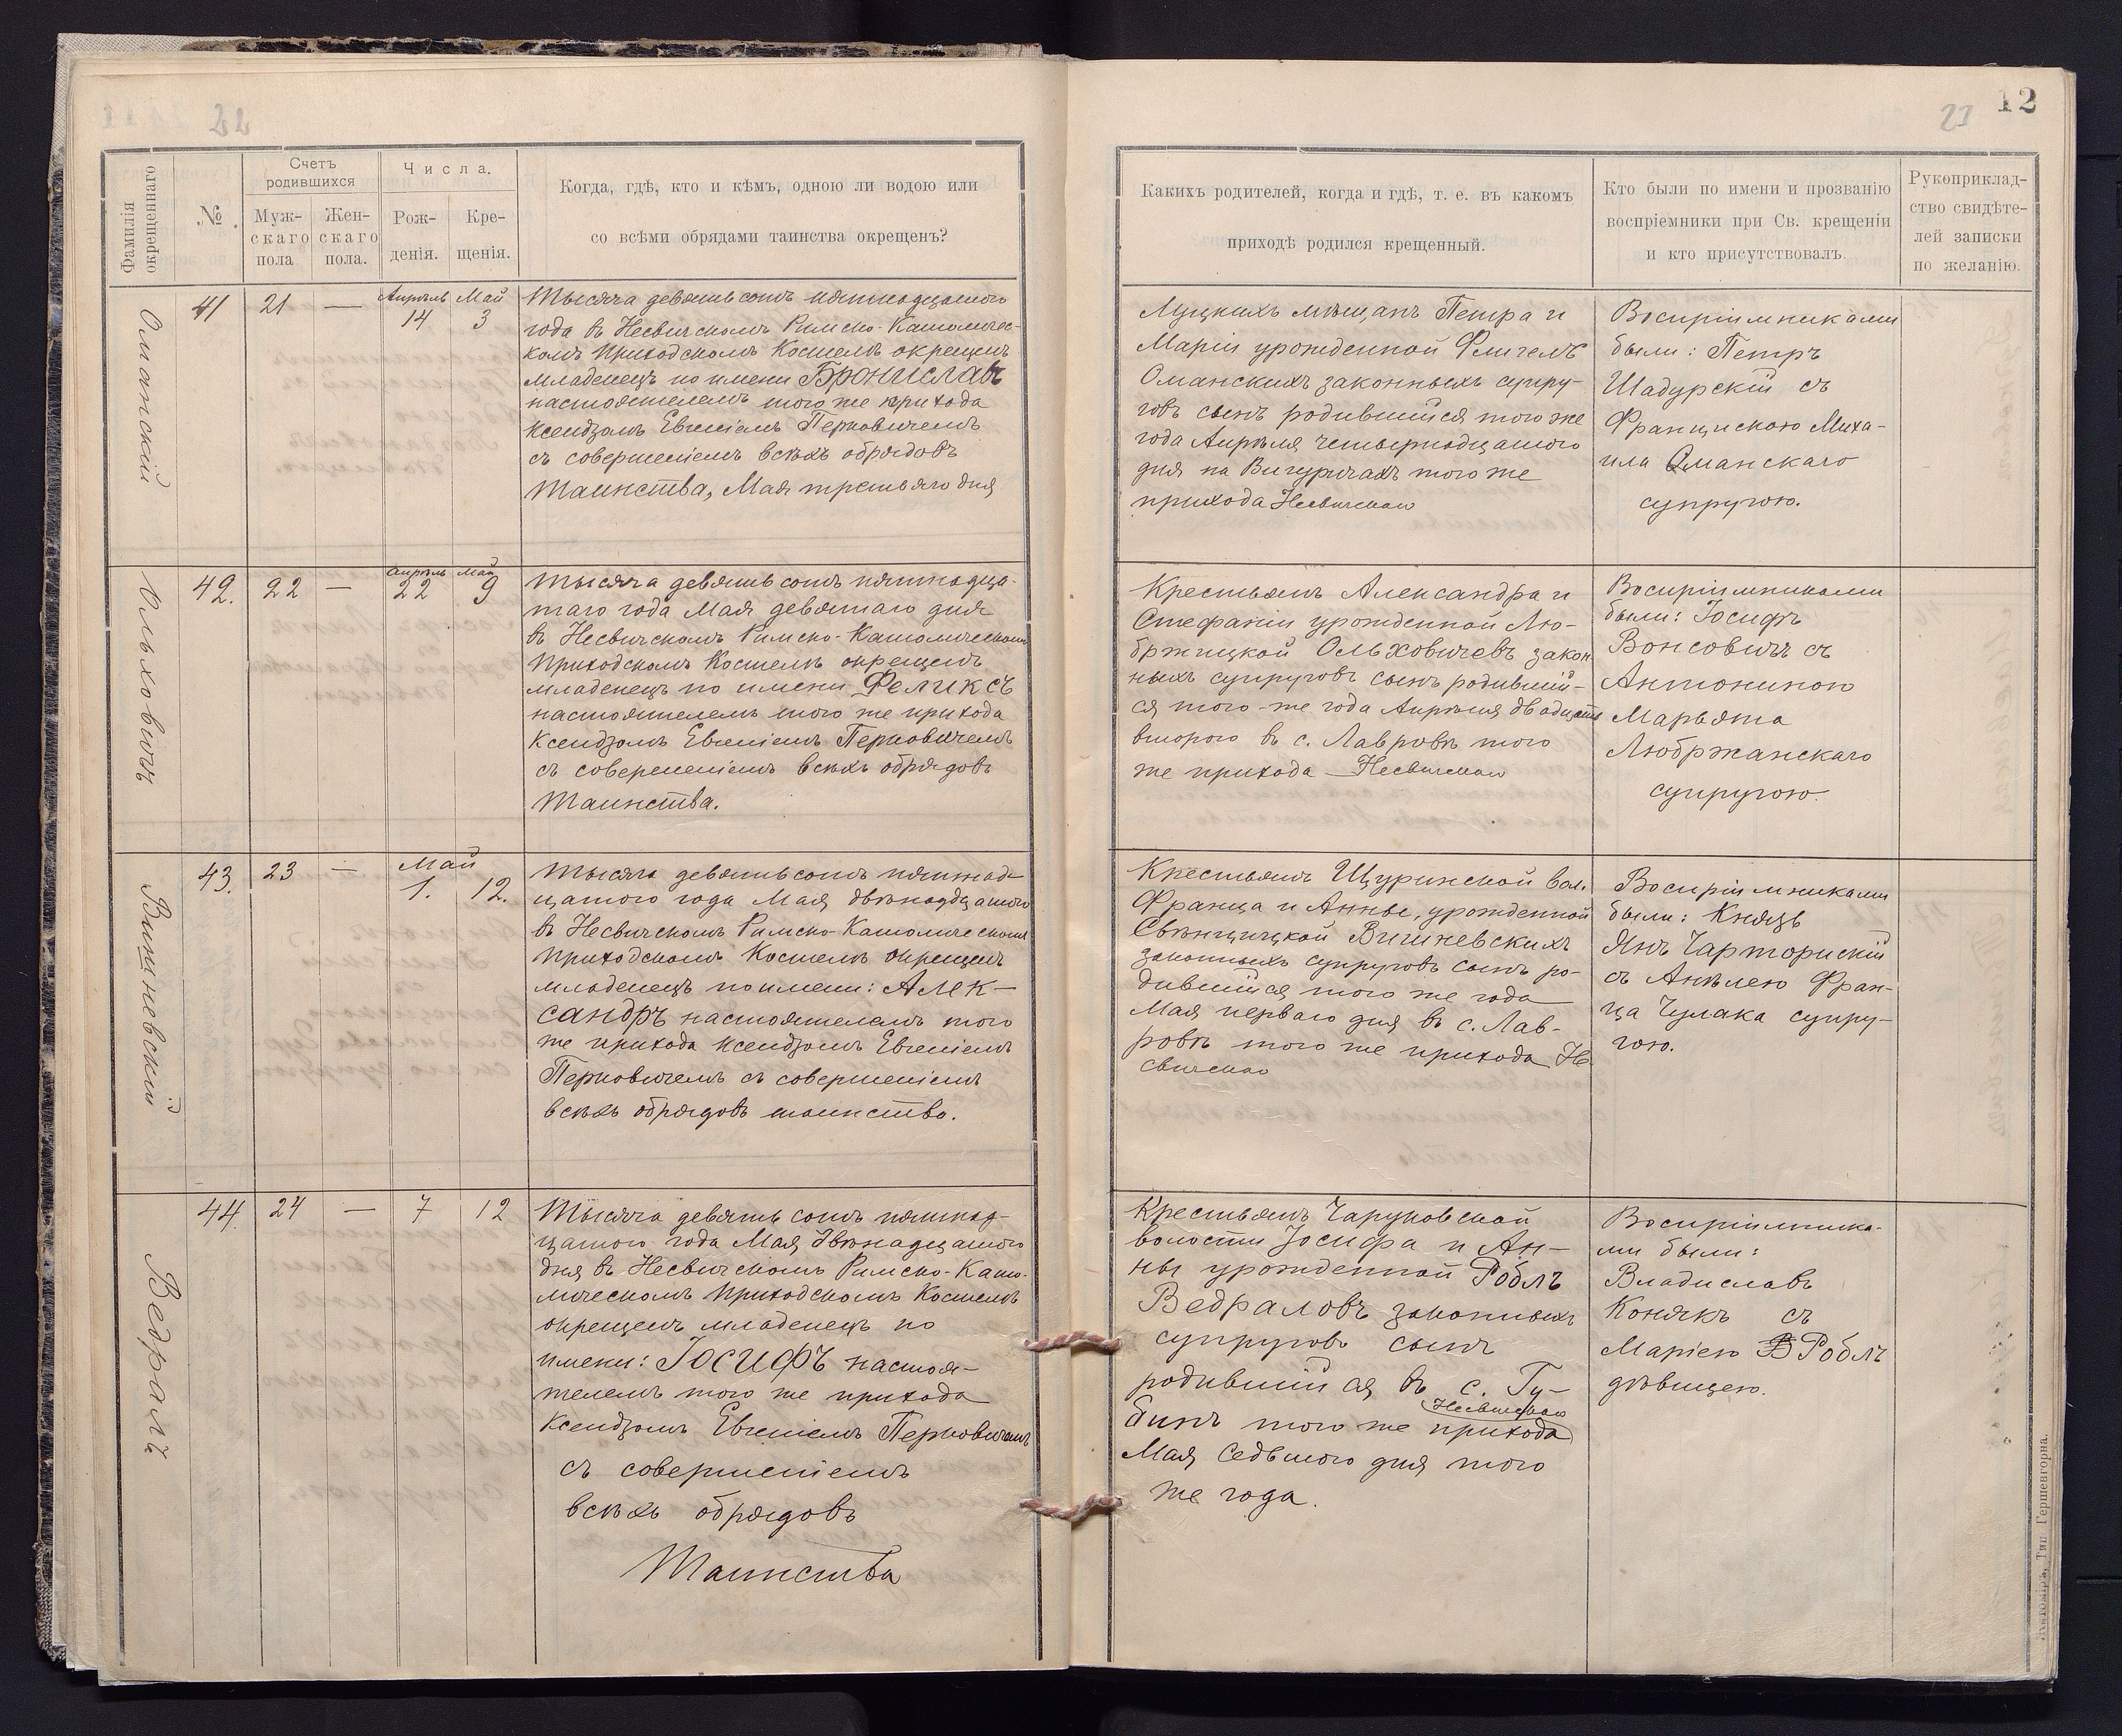 22
Фамилія окрещеннаго
№
Счетъ родившихся
Муж-
скаго
пола
Жен-
скаго
пола.
Числа.
Рож-
денія.
Кре-
щенія.
Когда, гдѣ, кто и кѣмъ, одною ли водою или
со всѣми обрядами таинства окрещенъ?
Оманскій
41
21
—
Апрѣль
14
Май
3
Тысяча девятьсотъ пятнадцатого
года въ Несвичскомъ Римско-Католичес-
комъ Приходскомъ Костелѣ окрещенъ
младенецъ по имени Брониславъ
настоятелемъ того же прихода
Ксендзомъ Евгеніемъ Перковичемъ
съ совершеніемъ всѣхъ обрядовъ
Таинства, Мая третьяго дня
Ольховичъ
42.
22
—
Апрѣль
22
Май
9
Тысяча девятьсотъ пятнадца-
таго года Мая девятаго дня
въ Несвичскомъ Римско-Католическомъ
Приходскомъ Костелѣ окрещенъ
младенецъ по имени Феликсъ
настоятелемъ того же прихода
Ксендзомъ Евгеніемъ Перковичемъ
съ совершеніемъ всѣхъ обрядовъ
Таинства.
Вишневскій
43.
23
—
Май
1.
12.
Тысяча девятьсотъ пятнад-
цатого года Мая двѣнадцатого
въ Несвичскомъ Римско-Католическомъ
Приходскомъ Костелѣ окрещенъ
младенецъ по имени: Алек-
сандръ настоятелемъ того
же прихода Ксендзомъ Евгеніемъ
Перковичемъ съ совершеніемъ
всѣхъ обрядовъ таинства.
Ведралъ
44.
24
—
7
12
Тысяча девятьсотъ пятнад-
цатого года Мая двѣнадцатого
дня въ Несвичскомъ Римско-Като-
лическомъ Приходскомъ Костелѣ
окрещенъ младенецъ по
имени: Іосифъ настоя-
телемъ того же прихода
Ксендзомъ Евгеніемъ Перковичемъ
съ совершеніемъ
всѣхъ обрядовъ
Таинства
23
12
Какихъ родителей, когда и гдѣ, т. е. въ какомъ
приходѣ родился крещенный.
Кто были по имени и прозванію
воспріемники при Св. крещеніи
и кто присутствовалъ.
Рукоприклад-
ство свидѣте-
лей записки
по желанію.
Луцкихъ мѣщанъ Петра и
Маріи урожденной Флигель
Оманскихъ законныхъ супру-
говъ сынъ родившійся того же
года Апрѣля четырнадцатого
дня на Вигуричахъ того же
прихода Несвичскаго
Воспріимниками
были: Петръ
Шадурскій съ
Францискою Миха-
ила Оманскаго
супругою.
Крестьянъ Александра и
Стефаніи урожденной Лю-
бржицкой Ольховичевъ закон-
ныхъ супруговъ сынъ родившій-
ся того-же года Апрѣля двадцать
второго въ с. Лавровѣ того
же прихода Несвичскаго
Воспріимниками
были: Іосифъ
Вонсовичъ съ
Антониною
Марьяна
Любржанскаго
супругою.
Крестьянъ Щуринской вол.
Франца и Анны, урожденной
Свѣнцицкой Вишневскихъ
законныхъ супруговъ сынъ ро-
дившійся того же года
Мая перваго дня въ с. Лав-
ровѣ того же прихода Не-
свичскаго
Воспріимниками
были: Князь
Янъ Чарторискій
съ Анѣлею Фран-
ца Чулака супру-
гою.
Крестьянъ Чаруковской
волости Іосифа и Ан-
ны урожденной Роблъ
Ведраловъ законныхъ
супруговъ сынъ
родившійся въ с. Гу-
бинъ того же прихода
Несвичскаго
Мая седьмого дня того
же года.
Воспріимника-
ми были:
Владиславъ
Конякъ съ
Маріею Роблъ
дѣвицею.
Житоміръ, Тип. Гершенгорна.